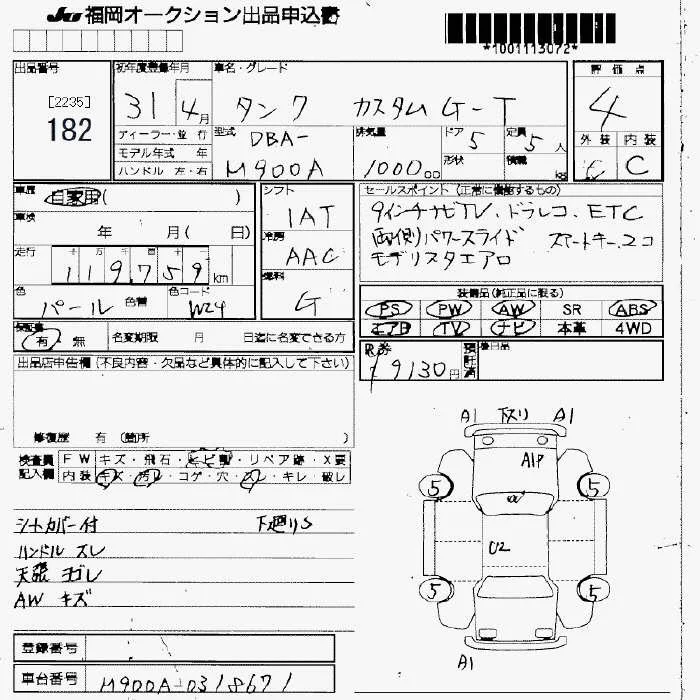 JU 福岡オークション出品申込書
*1001113072*
出品番号
[2235]
182
初年度登録年月
31 4月
車名・グレード
タンク カスタム G-T
評価点
4
ディーラー・並行
モデル年式 年
ハンドル 左・右
型式
DBA-
M900A
排気量
1000cc
ドア 5
形状
定員 5人
積載 kg
外装 内装
C
車歴
自家用( )
車検
年 月( 日)
走行
119,759km
色
パール
色替
色コード
W24
シフト
IAT
冷房
AAC
燃料
G
セールスポイント (正常に機能するもの)
9インチナビTV、ドラレコ、ETC
両側パワースライド スマートキー2コ
モデリスタエアロ
装備品(純正品に限る)
PS PW AW SR ABS
エアB TV ナビ 本革 4WD
保証書
有・無
名変期限 月 日迄に名変できる方
R券
9130円
預託済
後日品
出品店申告欄(不良内容・欠品など具体的に記入して下さい)
修復歴 有 (箇所 )
検査員
記入欄
FW キズ・飛石・ヒビ割・リペア跡・X要
内装 キズ・汚レ・コゲ・穴・スレ・キレ・破レ
シートカバー付 下廻りS
ハンドル スレ
天張 ヨゴレ
AW キズ
登録番号
車台番号
M900A-0318671
A1 下スリ A1
A1P
5 5
U2
5 5
A1